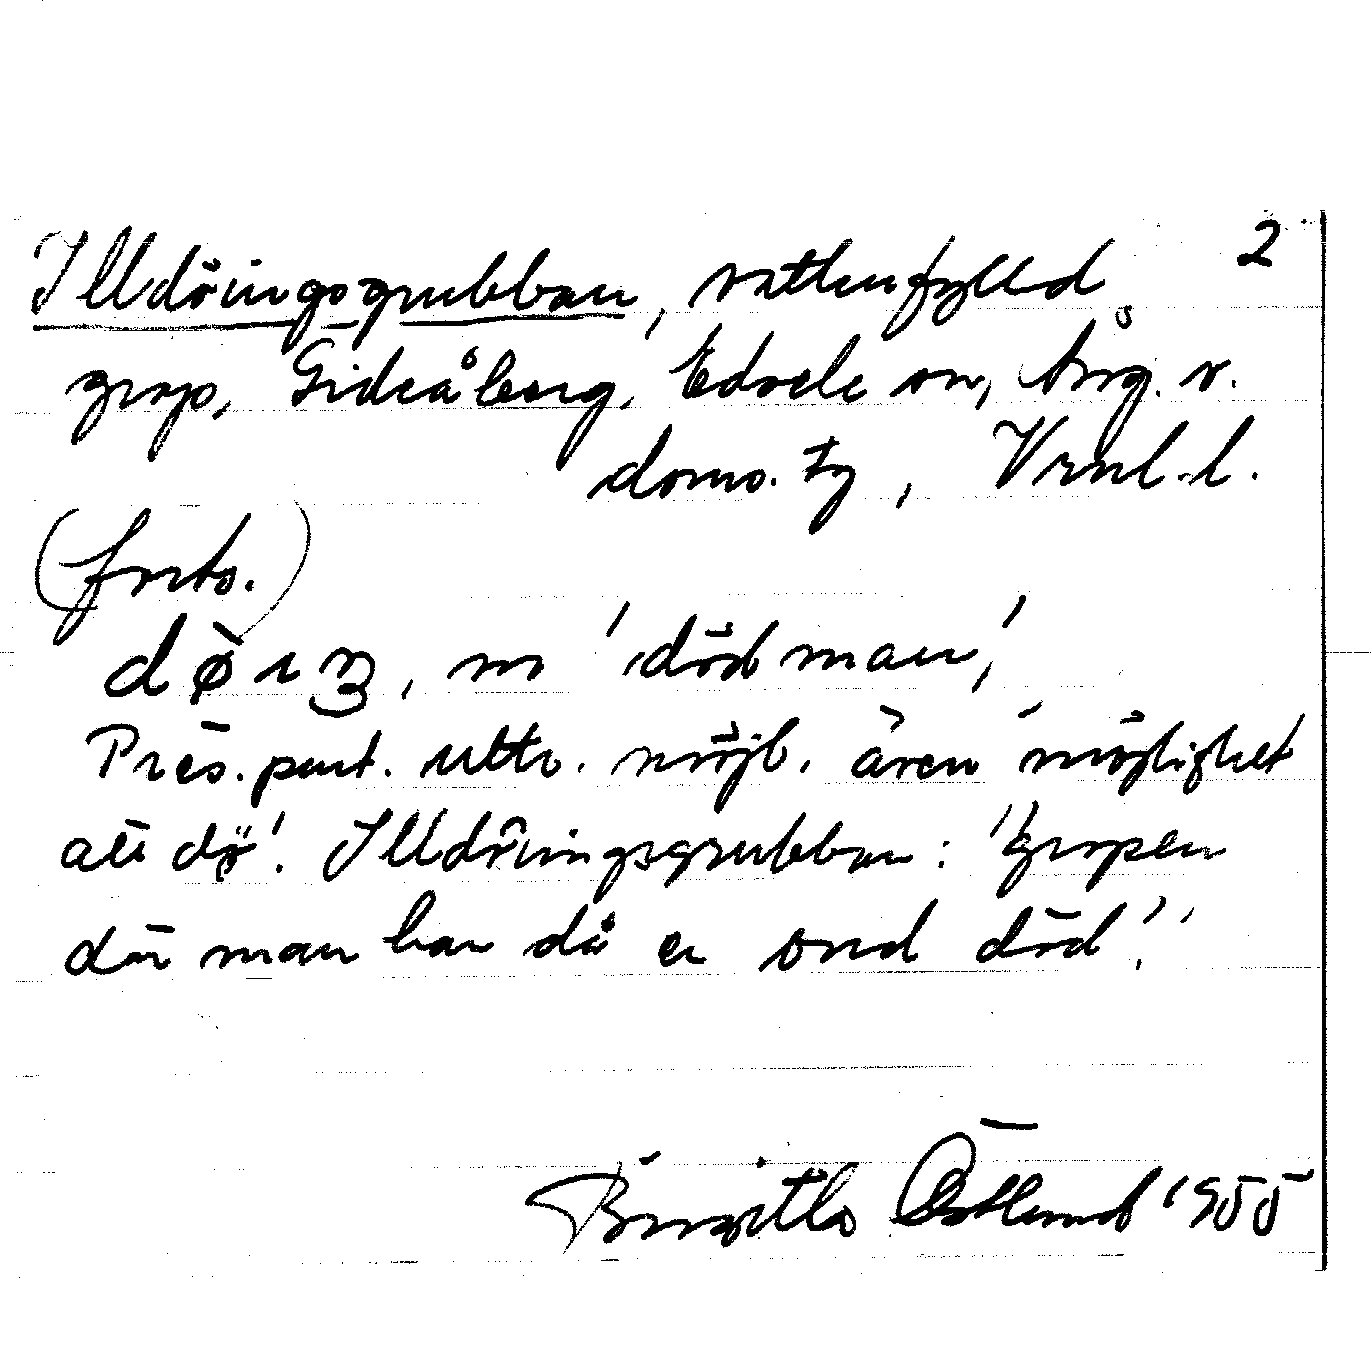 2
Illdöingsgrubban, vattenfylld
grop, Gideåberg, Edsele sn, Ång. v.
doms. tg, Vrnl. l.
(forts.)
m 'död man,'
Pres. part. uttr. möjl. även "möjlighet
att dö'. Illdöingsgrubban: "Gropen
där man kan då en ond död".
Birgitta Östlund 1955